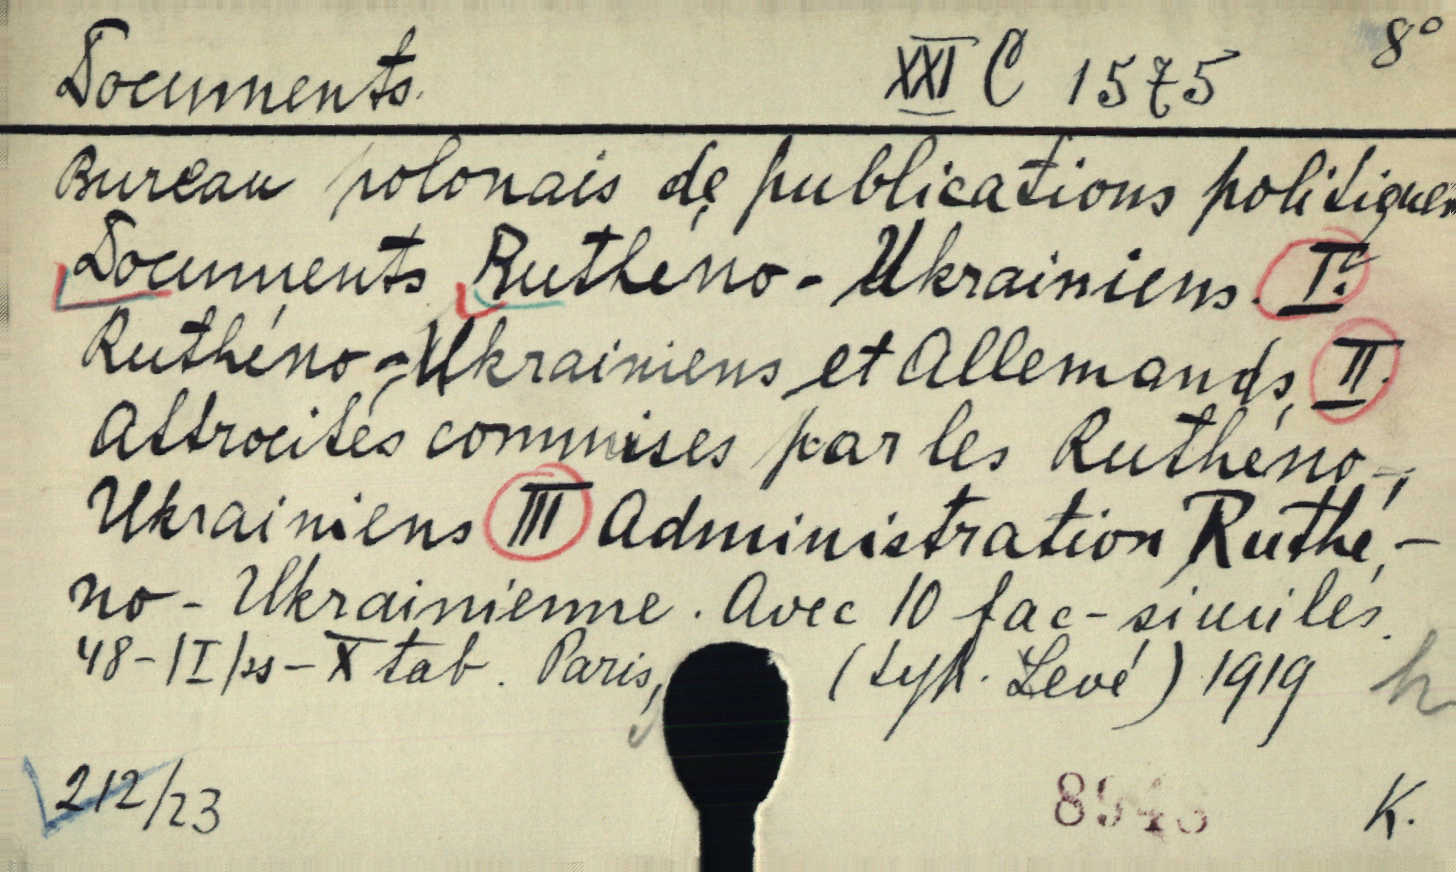 Documents. XXI C 1575 8°
Bureau polonais de publications politiques
Documents Ruthéno-Ukrainiens. I.
Ruthéno-Ukrainiens et Allemands, II.
Attrocités commises par les Ruthéno-
Ukrainiens III Administration Ruthé-
no-Ukrainienne. Avec 10 fac-similés.
48-|I|ss-X tab. Paris, (typ. Levé) 1919
212/23 K.